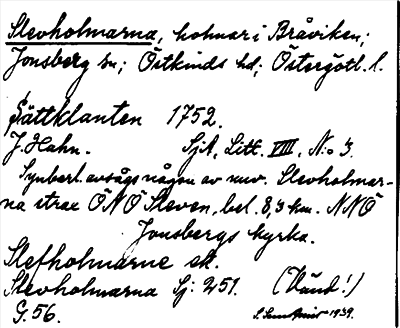 Slevholmarna, holmar i Bråviken;
Jonsberg sn; Östkinds hd; Östergötl. l.
Sättklanten 1752.
J. Hahn. Sjk, Litt. VIII, N:o 3.
Synberl. avsågs någon av nuv. Slevholmar-
na strax ÖNÖ Sleven, bel. 8,3 km. NNÖ
Jonsbergs kyrka.
Slefholmarne sk.
Slevholmarna Sj: 251. (Vänd!)
G. 56. 1939.